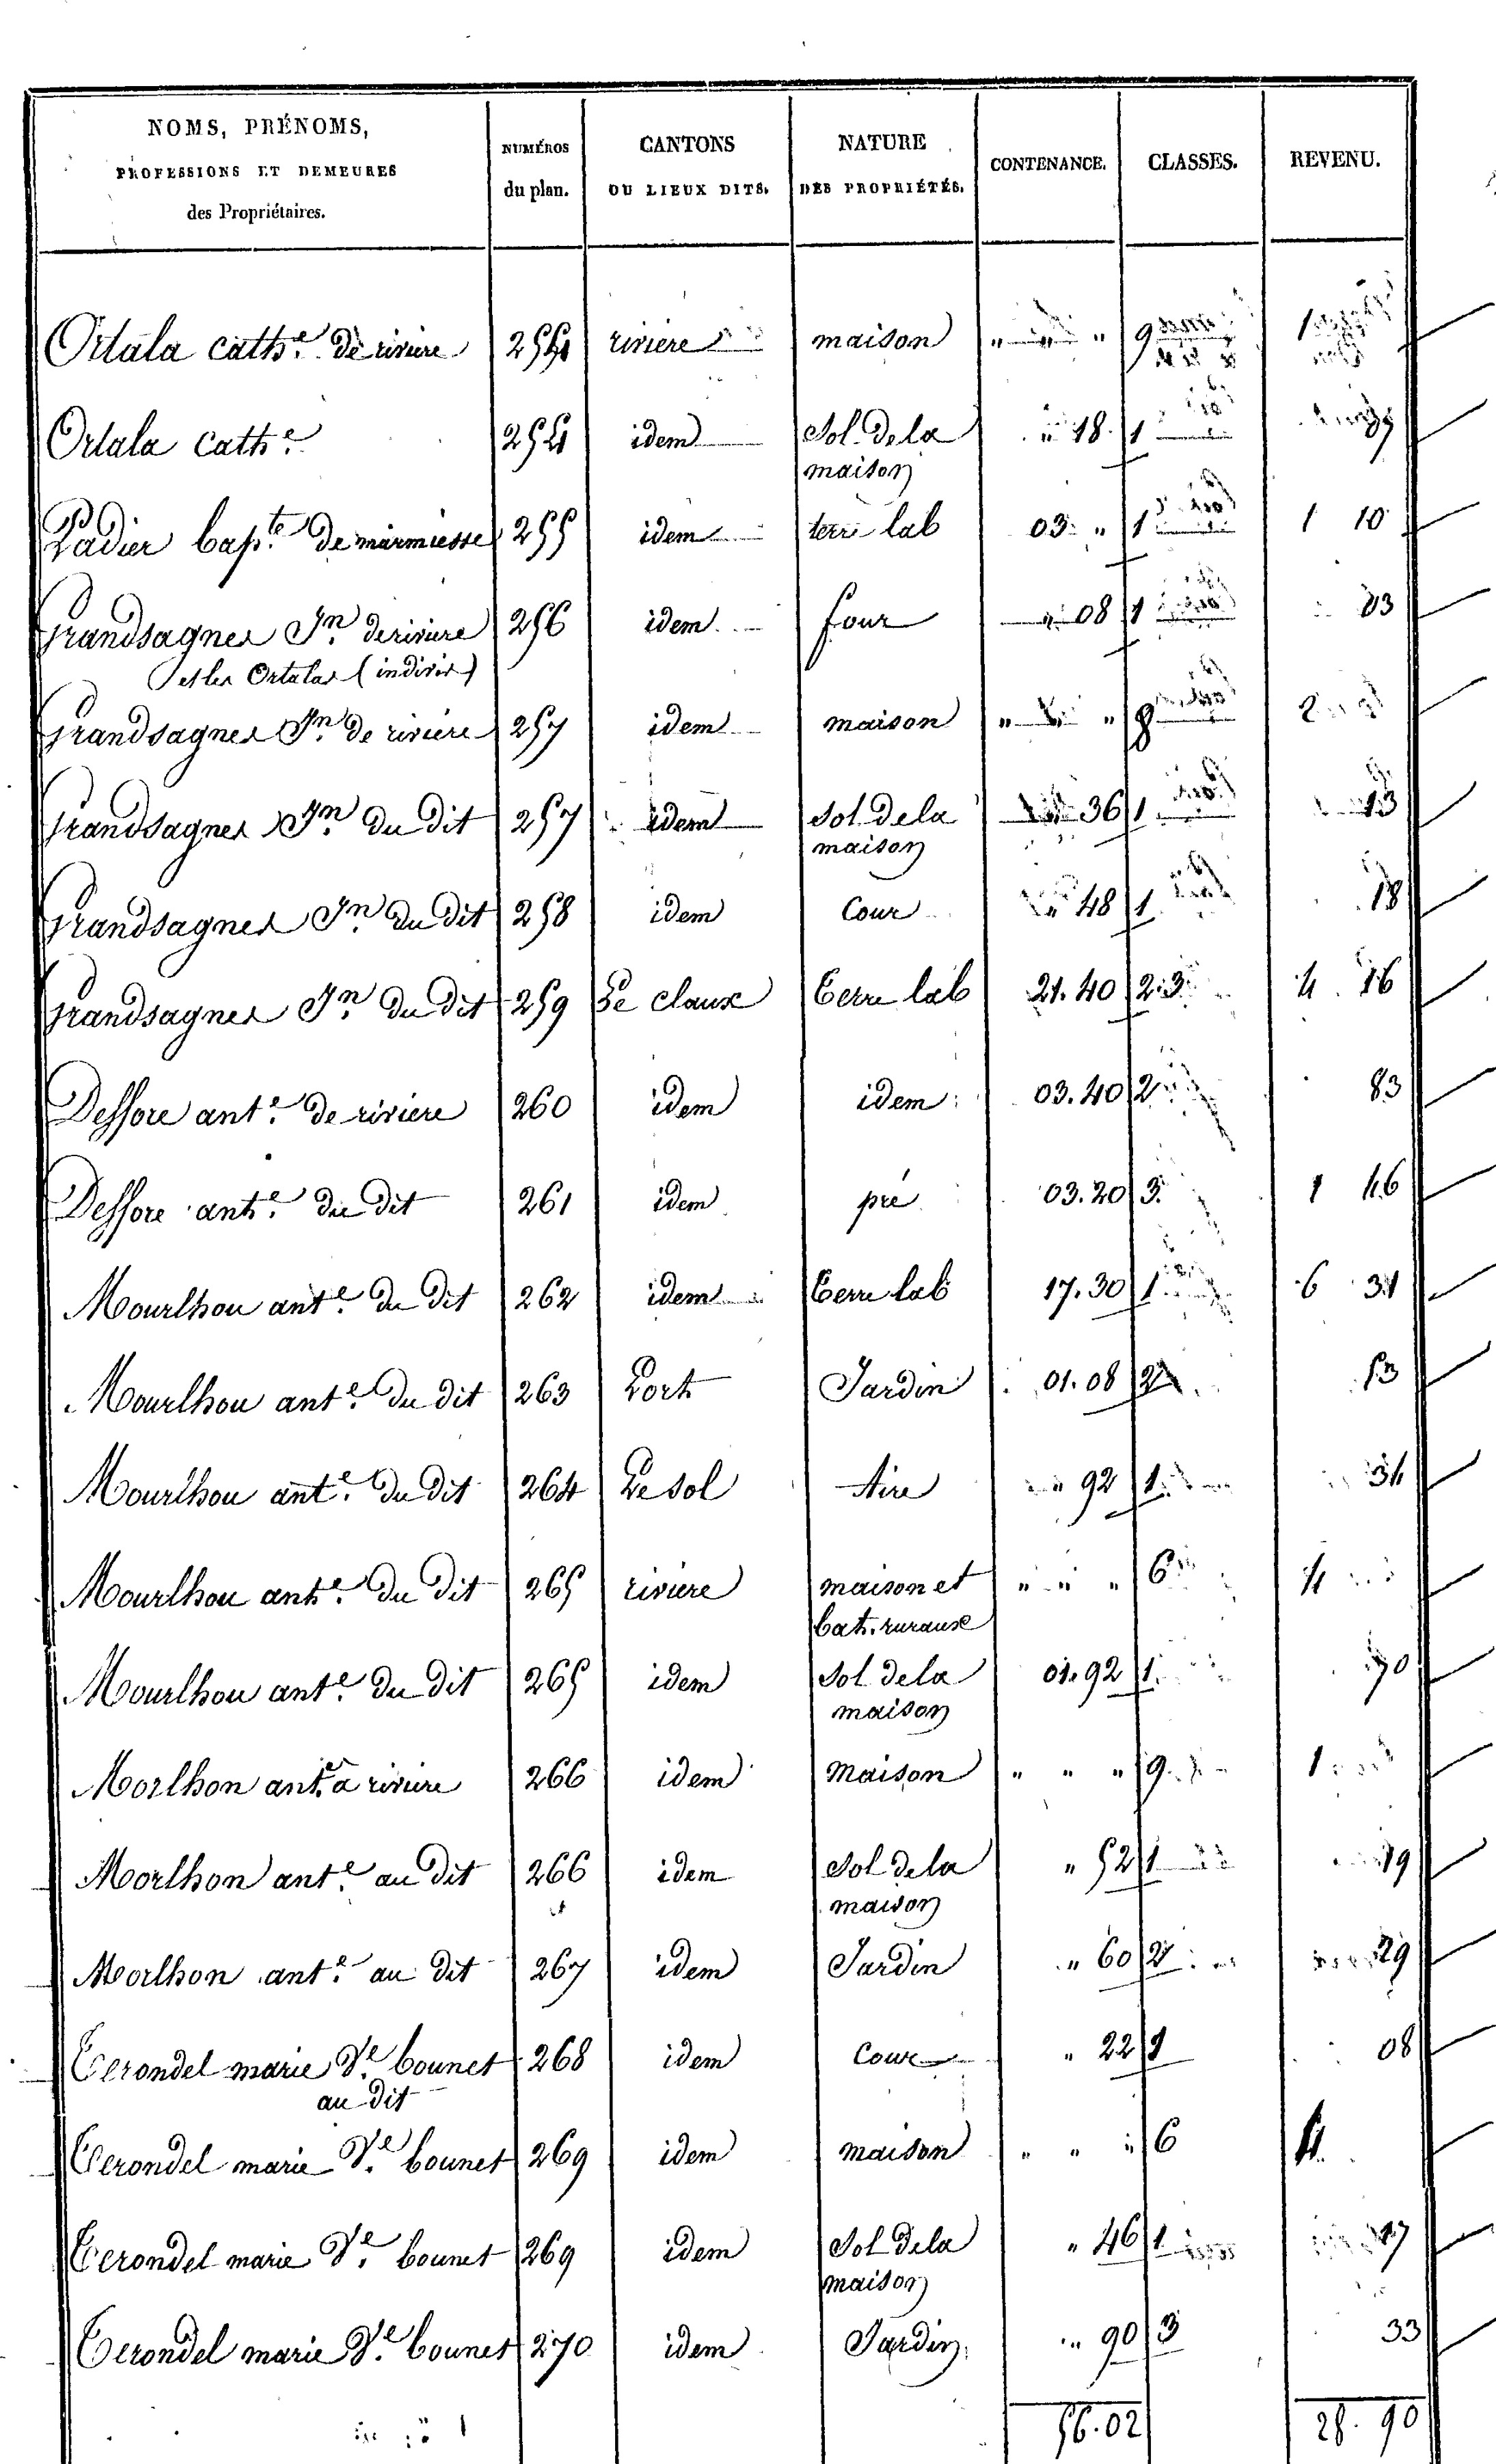 NOMS, PRÉNOMS, PROFESSIONS ET DEMEURES des Propriétaires. NUMÉROS du plan. CANTONS OU LIEUX DITS. NATURE DES PROPRIÉTÉS. CONTENANCE. CLASSES. REVENU.
Ortala cathe. de riviere 254 riviere maison " " " 9 1
Ortala cathe. 254 idem Sol de la " 18 1 07
maison
Ladier bapte. de marmiesse 255 idem terre lab 03. " 1 1 10
Grandsagnes Jn. de riviere 256 idem four " 08 1 03
et les Ortalas (indivis)
Grandsagnes Jn. de riviere 257 idem maison " " " 8 2
Grandsagnes Jn. du dit 257 idem Sol de la 36 1 13
maison
Grandsagnes Jn. du dit 258 idem Cour " 48 1 18
Grandsagnes Jn. du dit 259 Le claux terre lab 21.40 2.3 4 16
Dessore ante. de riviere 260 idem idem 03.40 2 83
Dessore ante. du dit 261 idem pré 03.20 3 1 46
Mourlhou ante. du dit 262 idem terre lab 17.30 1 6 31
Mourlhou ante. du dit 263 Lort Jardin 01.08 2 53
Mourlhou ante. du dit 264 Le sol Aire " 92 1 34
Mourlhou ante. du dit 265 riviere maison et " " " 6 4
bat. ruraux
Mourlhou ante. du dit 265 idem Sol de la 01.92 1 70
maison
Morlhon ante. a riviere 266 idem Maison " " " 9 1
Morlhon ante. au dit 266 idem Sol de la " 52 1 19
maison
Morlhon ante. au dit 267 idem Jardin " 60 2 29
Terondel marie Ve. bounet 268 idem Cour " 22 1 08
au dit
Terondel marie Ve. bounet 269 idem maison " " " 6 4
Terondel marie Ve. bounet 269 idem Sol de la " 46 1 17
maison
Terondel marie Ve. bounet 270 idem Jardin " 90 3 33
56.02 28.90